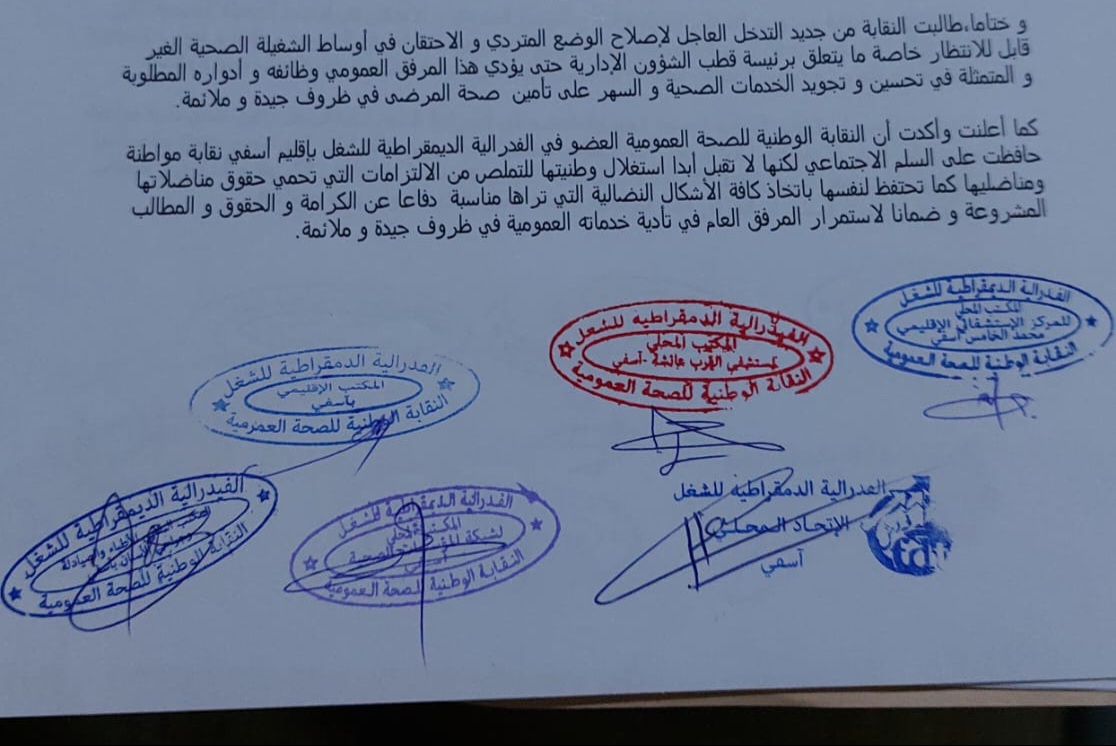 و ختاما،طالبت النقابة من جديد التدخل العاجل لإصلاح الوضع المتردي و الاحتقان في أوساط الشغيلة الصحية الغير
قابل للانتظار خاصة ما يتعلق برئيسة قطب الشؤون الإدارية حتى يؤدي هذا المرفق العمومي وظائفه و أدواره المطلوبة
و المتمثلة في تحسين و تجويد الخدمات الصحية و السهر على تأمين صحة المرضى في ظروف جيدة و ملائمة.
كما أعلنت وأكدت أن النقابة الوطنية للصحة العمومية العضو في الفدرالية الديمقراطية للشغل بإقليم أسفي نقابة مواطنة
حافظت على السلم الاجتماعي لكنها لا تقبل أبدا استغلال وطنيتها للتملص من الالتزامات التي تحمي حقوق مناضلاتها
ومناضليها كما تحتفظ لنفسها باتخاذ كافة الأشكال النضالية التي تراها مناسبة دفاعا عن الكرامة و الحقوق و المطالب
المشروعة و ضمانا لاستمرار المرفق العام في تأدية خدماته العمومية في ظروف جيدة و ملائمة.
الفدرالية الديمقراطية للشغل
المكتب المحلي
للمركز الإستشفائي الإقليمي
محمد الخامس أسفي
النقابة الوطنية للصحة العمومية
الفيدرالية الدمقراطية للشغل
المكتب المحلي
النقابة الوطنية للصحة العمومية
الفدرالية الدمقراطية للشغل
المكتب الإقليمي
بآسفي
النقابة الوطنية للصحة العمومية
الفدرالية الدمقراطية للشغل
الإتحاد المحلي
آسفي
الفدرالية الديمقراطية للشغل
المكتب المحلي
النقابة الوطنية للصحة العمومية
الفيدرالية الديمقراطية للشغل
النقابة الوطنية للصحة العمومية